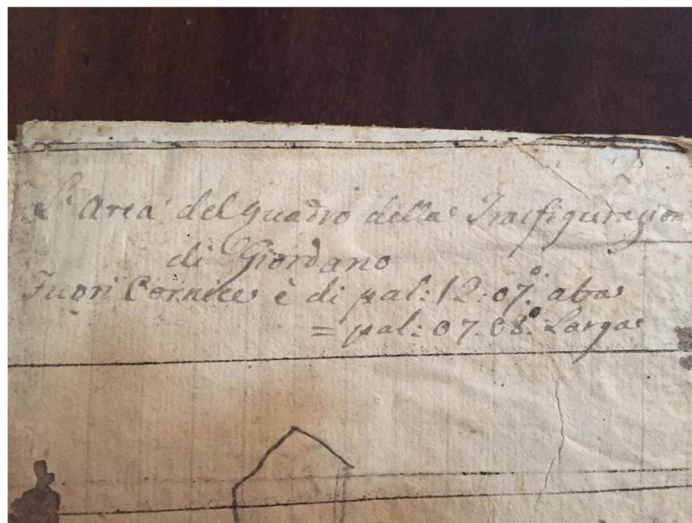 L'Area del Quadro della Trasfigurazion
di Giordano
Fuori Cornice è di pal: 12:07. alta
= pal: 07.08. Larga